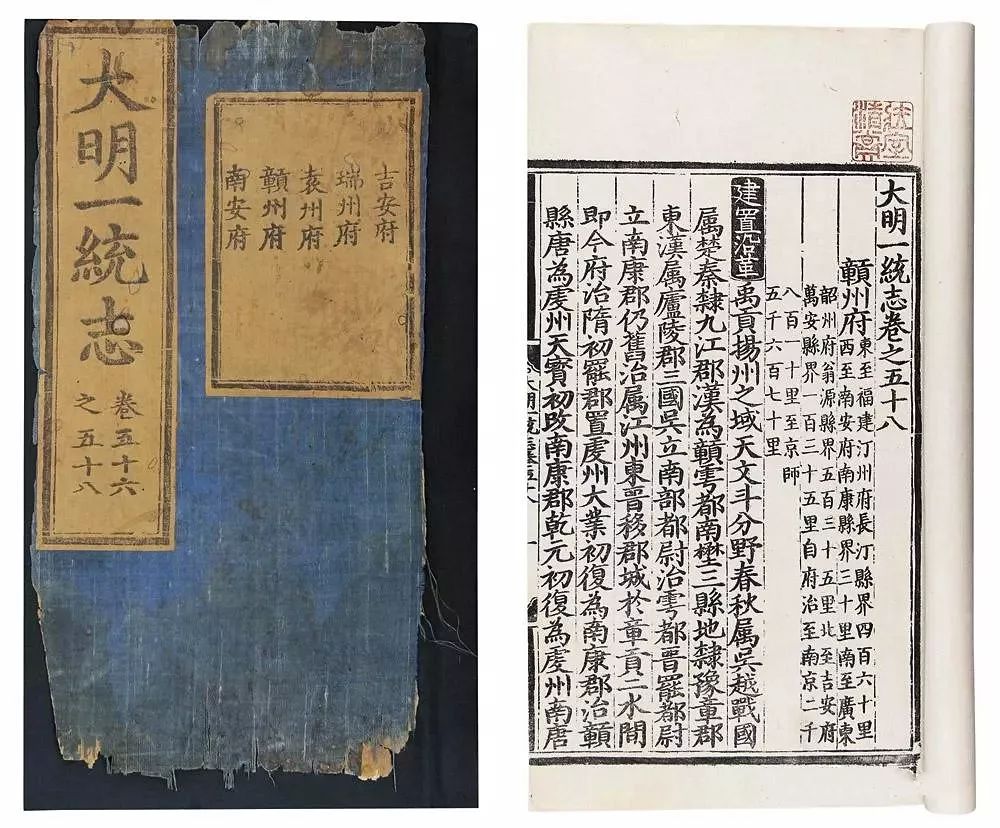 大明一統志
卷五十六
之五十八
吉安府
瑞州府
袁州府
贛州府
南安府
大明一統志卷之五十八
贛州府東至福建汀州府長汀縣界四百六十里
西至南安府南康縣界三十里南至廣東
韶州府翁源縣界五百三十五里北至吉安府
萬安縣界一百三十五里自府治至南京二千
八百一十里至京師
五千六百七十里
建置沿革禹貢揚州之域天文斗分野春秋属吳越戰國
属楚秦隸九江郡漢為贛雩都南壄三縣地隸豫章郡
東漢属廬陵郡三國吳立南部都尉治雩都晉罷都尉
立南康郡仍舊治属江州東晉移郡城於章貢二水間
即今府治隋初罷郡置虔州大業初復為南康郡治贛
縣唐為虔州天寶初改南康郡乾元初復為虔州南唐